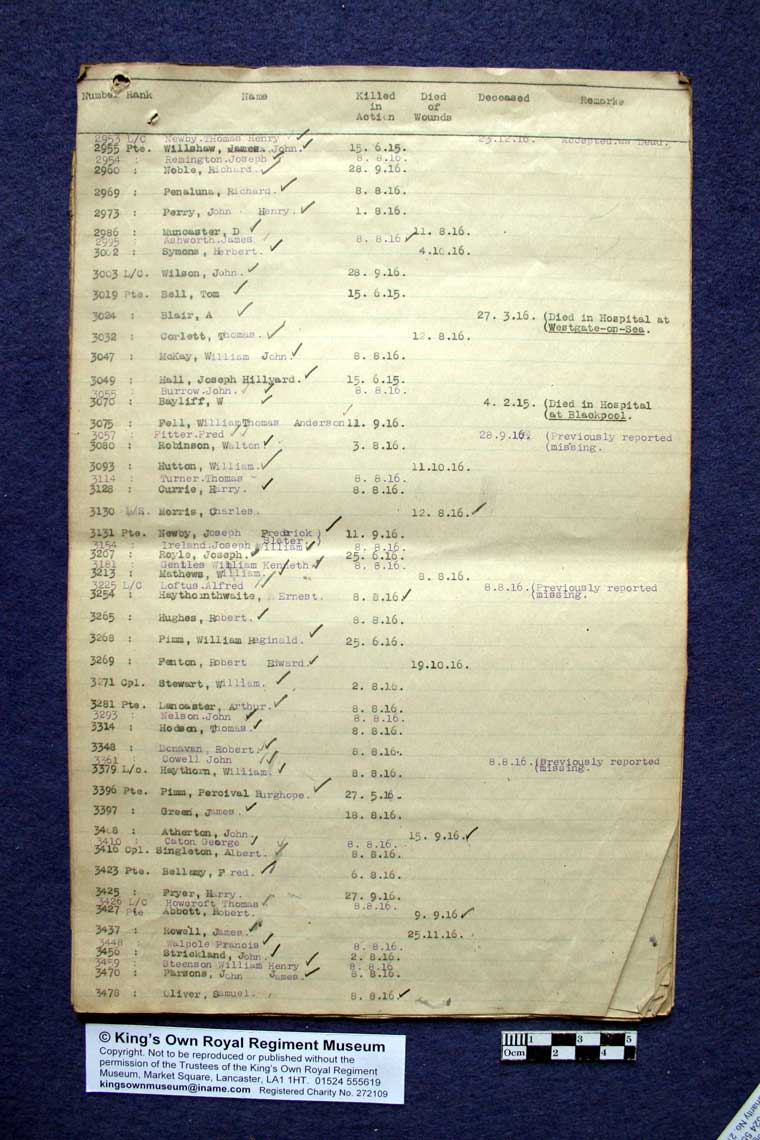 Number Rank Name Killed in Action Died of Wounds Deceased Remarks
2953 L/C Newby.Thomas Henry 23.12.16. Accepted.as Dead.
2955 Pte. Willshaw, James John. 15. 6.15.
2954 : Remington.Joseph 8. 8.16.
2960 : Noble, Richard. 28. 9.16.
2969 : Penaluna, Richard. 8. 8.16.
2973 : Perry, John Henry. 1. 8.16.
2986 : Muncaster, D 11. 8.16.
2995 Ashworth.James 8. 8.16
3002 : Symons, Herbert. 4.10.16.
3003 L/C. Wilson, John. 28. 9.16.
3019 Pte. Bell, Tom 15. 6.15.
3024 : Blair, A 27. 3.16. (Died in Hospital at
(Westgate-on-Sea.
3032 : Corlett, Thomas. 12. 8.16.
3047 : McKay, William John. 8. 8.16.
3049 : Hall, Joseph Hillyard. 15. 6.15.
3055 : Burrow.John. 8. 8.16.
3070 : Bayliff, W 4. 2.15. (Died in Hospital
(at Blackpool.
3075 : Fell, William Thomas Anderson 11. 9.16.
3057 : Fitter.Fred 28.9.16. (Previously reported
(missing.
3080 : Robinson, Walton 3. 8.16.
3093 : Hutton, William. 11.10.16.
3114 : Turner.Thomas 8. 8.16.
3128 : Currie, Harry. 8. 8.16.
3130 L/S. Morris, Charles. 12. 8.16.
3131 Pte. Newby, Joseph Fredrick )
Slater. )
11. 9.16.
3154 : Ireland.Joseph William 8. 8.16.
3207 : Royle, Joseph. 25. 6.16.
3181 : Gentles William Kenneth 8. 8.16.
3213 : Mathews, William. 8. 8.16.
3225 L/C Loftus.Alfred 8.8.16.(Previously reported
(missing.
3254 : Haythornthwaite, Ernest. 8. 8.16.
3265 : Hughes, Robert. 8. 8.16.
3268 : Pimm, William Reginald. 25. 6.16.
3269 : Fenton, Robert Edward. 19.10.16.
3271 Cpl. Stewart, William. 2. 8.16.
3281 Pte. Lancaster, Arthur. 8. 8.16.
3293 : Nelson.John 8. 8.16.
3314 : Hodson, Thomas. 8. 8.16.
3348 : Donavan, Robert. 8. 8.16.
3361 : Cowell John 8.8.16.(Previously reported
(missing.
3379 L/c. Haythorn, William. 8. 8.16.
3396 Pte. Pimm, Percival Burghope. 27. 5.16.
3397 : Green, James. 18. 8.16.
3408 : Atherton, John. 15. 9.16.
3410 : Caton George 8. 8.16.
3416 Cpl. Singleton, Albert. 8. 8.16.
3423 Pte. Bellamy, Fred. 6. 8.16.
3425 : Fryer, Harry. 27. 9.16.
3426 L/C Howcroft Thomas 8.8.16.
3427 Pte Abbott, Robert. 9. 9.16.
3437 : Rowell, James. 25.11.16.
3448 : Walpole Francis 8. 8.16.
3456 : Strickland, John. 2. 8.16.
3459 : Steenson William Henry 8. 8.16
3470 : Parsons, John James. 8. 8.16.
3478 : Oliver, Samuel. 8. 8.16.
© King's Own Royal Regiment Museum
Copyright. Not to be reproduced or published without the
permission of the Trustees of the King's Own Royal Regiment
Museum, Market Square, Lancaster, LA1 1HT. 01524 555619
kingsownmuseum@iname.com Registered Charity No. 272109
0cm 1 2 3 4 5